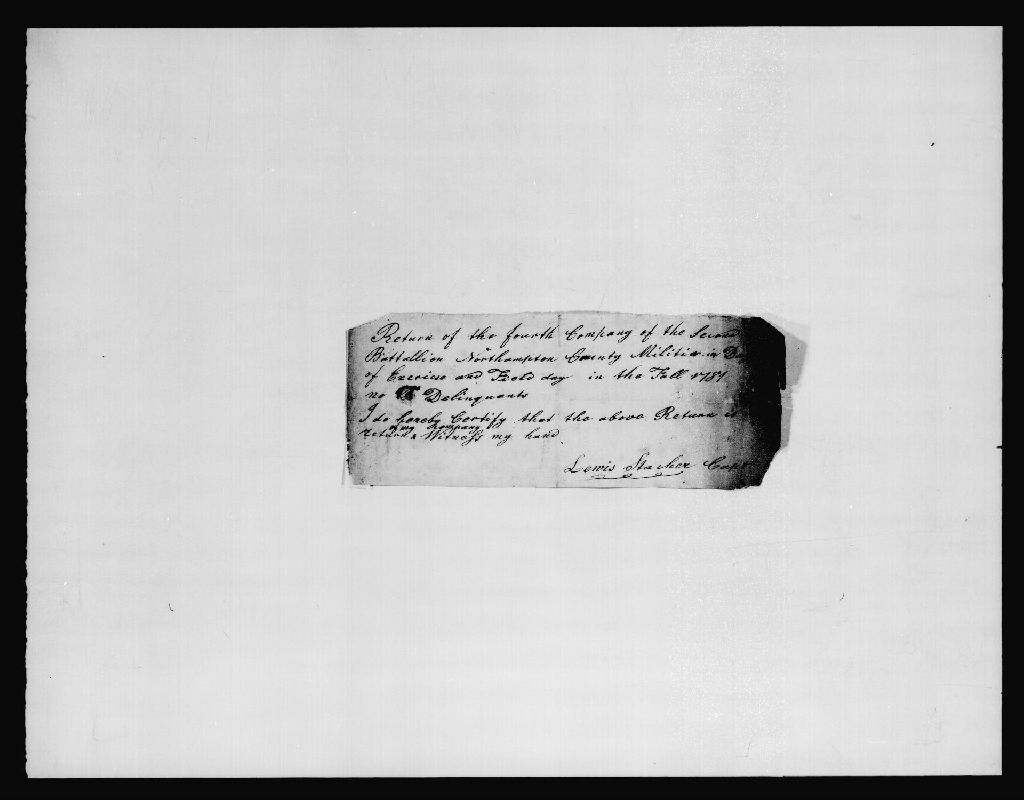 Return of the fourth Company of the Second
Battallion Northampton County Militia in
of Exercise and Field day in the Fall 1787
no Delinquants
I do hereby Certify that the above Return is
of my Company
return & Witness my hand
Lewis Stacher Capt